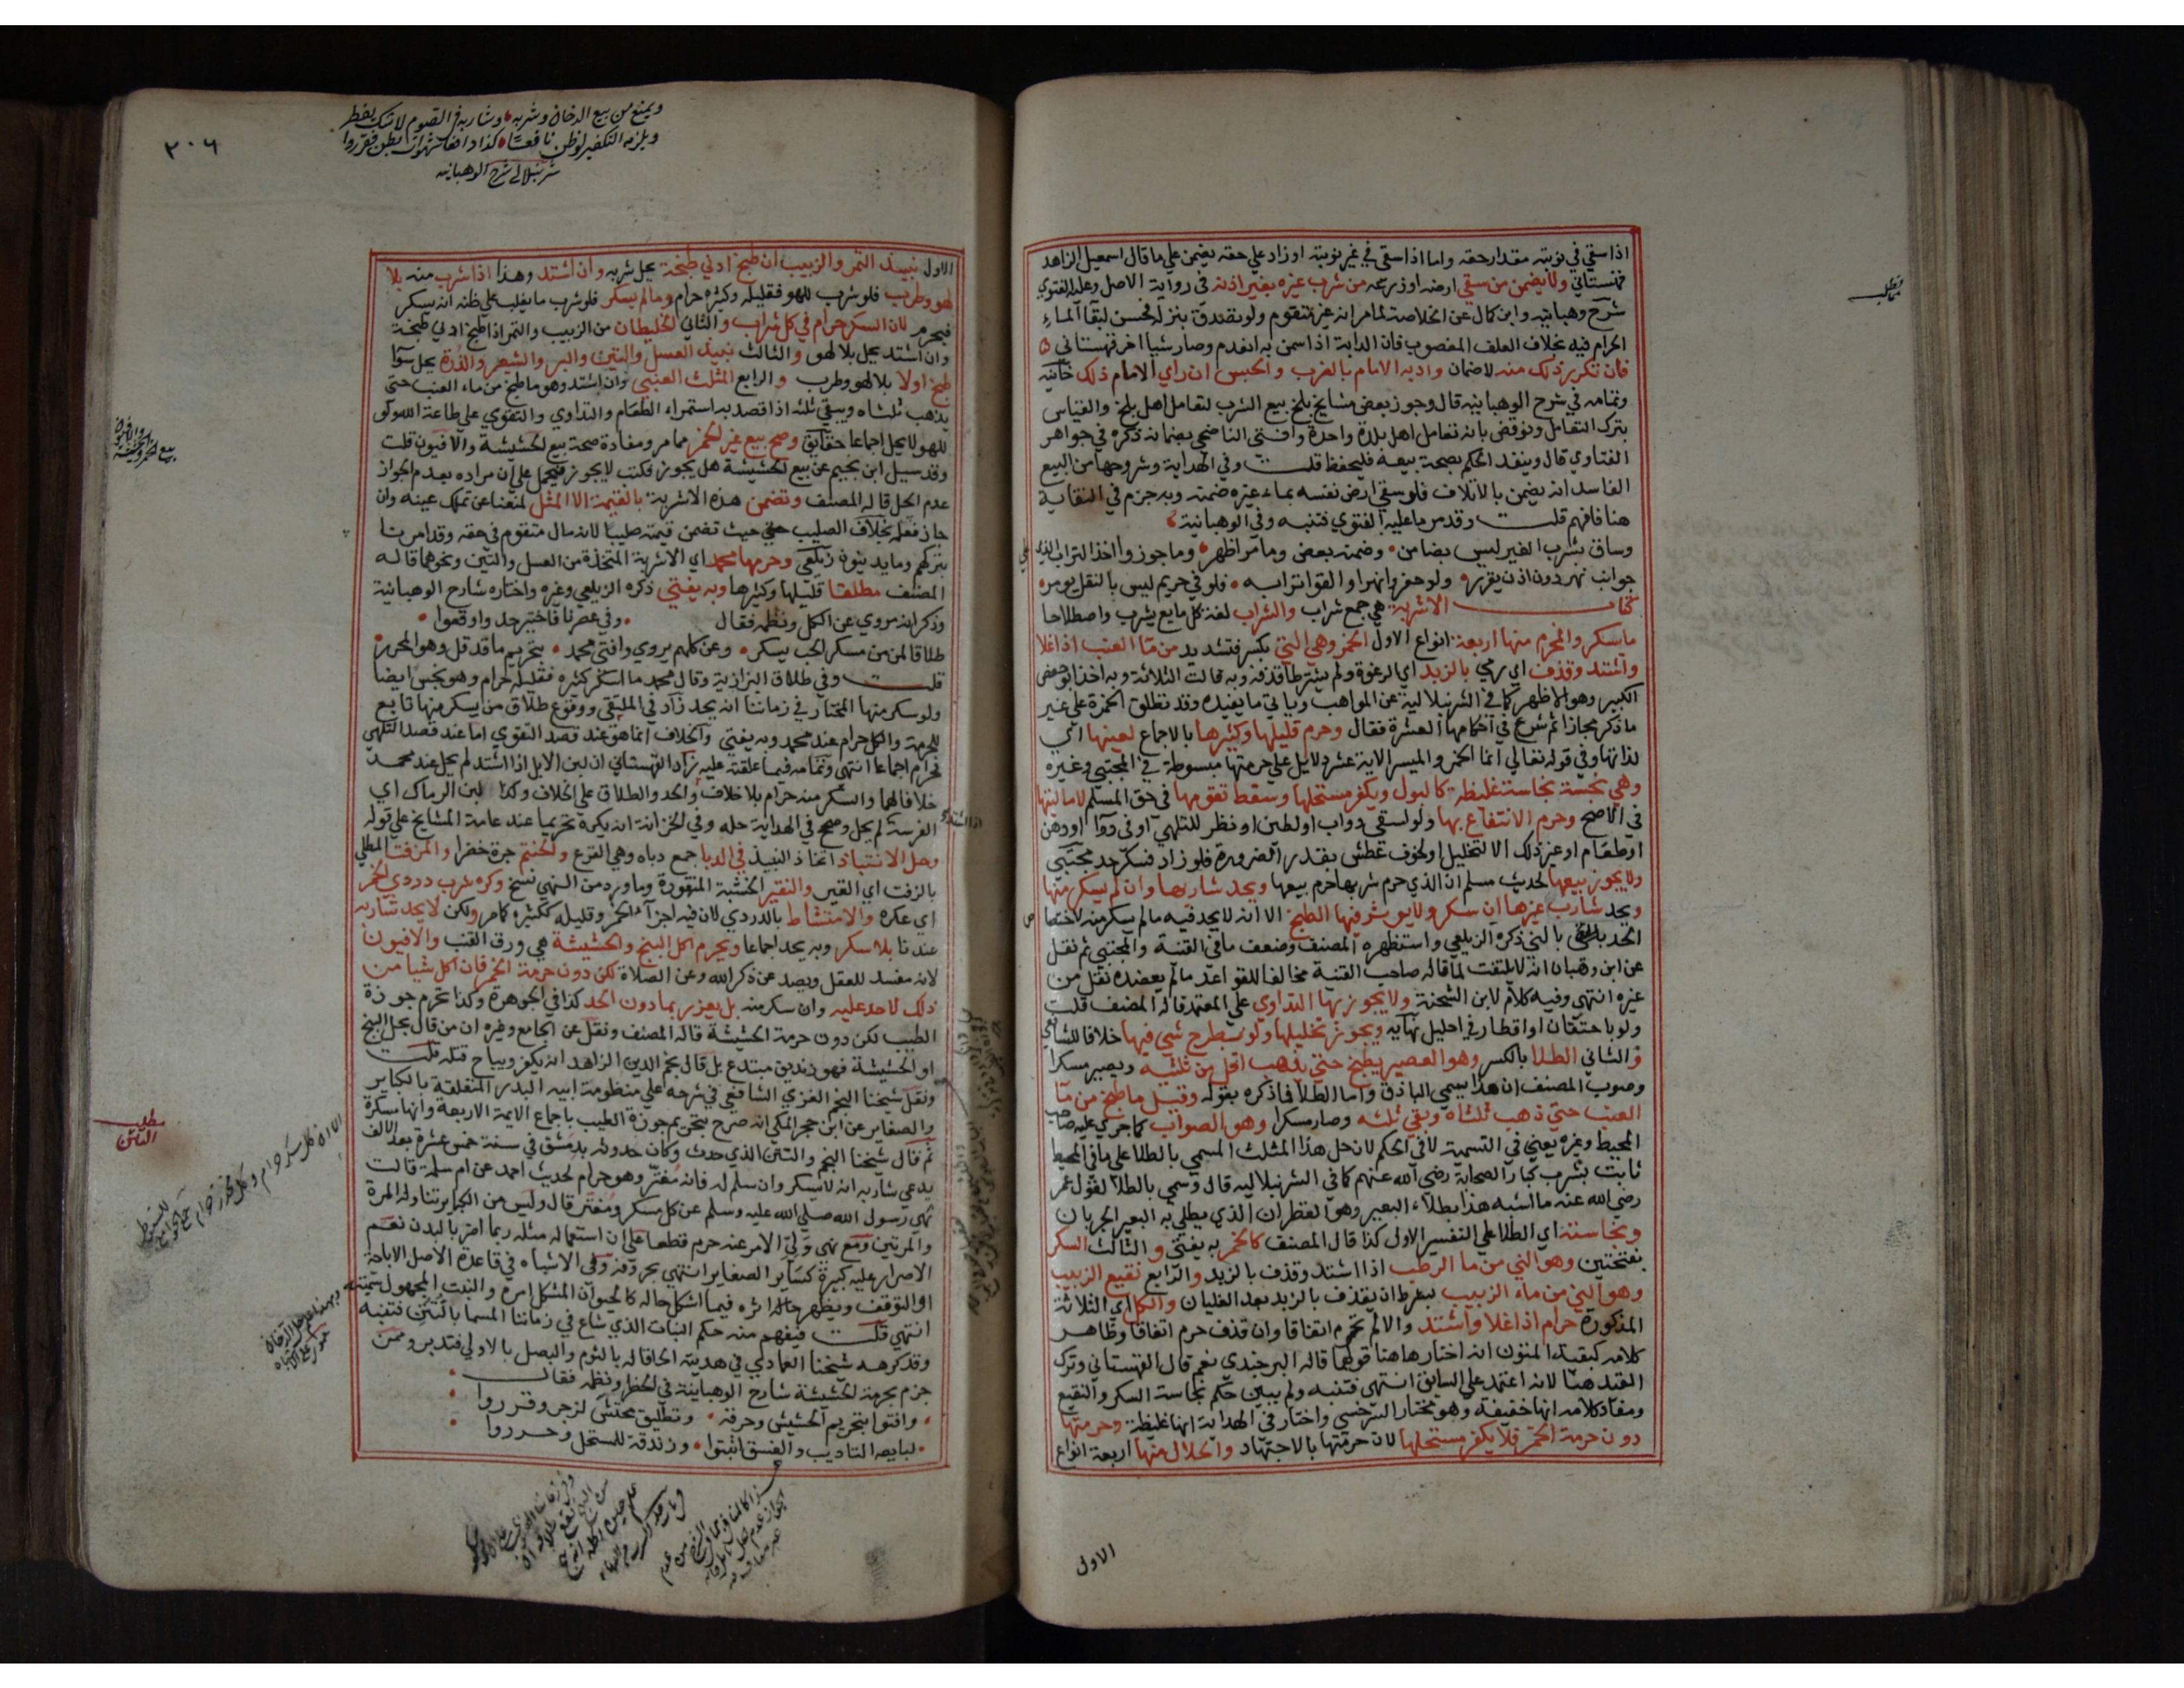 اذا سقي في نوبته مقدار حقه واما اذا سقي في غير نوبته او زاد علي حقه يضمن علي ما قال اسمعيل الزاهد
قهستاني ولا يضمن من سقي ارضه او زرعه من شرب غيره بغير اذنه في رواية الاصل وعليه الفتوي
شرح وهبانيه وابن كمال عن الخلاصة لما مر انه غير متقوم ولو تصدق بنزله فحسن لبقآ المآء
الحرام فيه بخلاف العلف المغصوب فان الدابة اذا سمن به انعدم وصار شيا اخر قهستاني
فان تكرر ذلك منه لا ضمان وادبه الامام بالضرب والحبس ان راي الامام ذلك خانيه
وتمامه في شرح الوهبانيه قال وجوز بعض مشايخ بلخ بيع الشرب لتعامل اهل بلخ والقياس
يترك التعامل ونوقض بانه تعامل اهل بلدة واحدة وافتي الناصحي بضمانه ذكره في جواهر
الفتاوي قال وينفذ الحكم بصحة بيعه فليحفظ قلت وفي الهداية وشروحها من البيع
الفاسد انه يضمن بالاتلاف فلو سقي ارض نفسه بماء غيره ضمنه وبه جزم في النقاية
هنا فافهم قلت وقد مر ما عليه الفتوي فتنبه وفي الوهبانية
وساق بشرب الغير ليس بضامن وضمنه بعض وما مر اظهر وما جوزوا اخذ التراب الذي علي
جوانب نهر دون اذن يقرر ولو حفروا نهرا والقوا ترابه فلو في حريم ليس بالنقل يومر
كتاب الاشربة هي جمع شراب والشراب لغة كل مايع يشرب واصطلاحا
ما يسكر والمحرم منها اربعة انواع الاول الخمر وهي النئ بكسر فتشديد من مآ العنب اذا غلا
واشتد وقذف اي رمي بالزبد اي الرغوة ولم يشترطا قذفه وبه قالت الثلاثة وبه اخذ ابو حفص
الكبير وهو الاظهر كما في الشرنبلالية عن المواهب وياتي ما يفيده وقد تطلق الخمرة علي غير
ما ذكر مجازا ثم شرع في احكامها العشرة فقال وحرم قليلها وكثيرها بالاجماع لعينها اي
لذاتها وفي قوله تعالي انما الخمر والميسر الاية عشر دلايل علي حرمتها مبسوطة في المجتبي وغيره
وهي نجسة نجاسة غليظة كالبول ويكفر مستحلها وسقط تقومها في حق المسلم لا ماليتها
في الاصح وحرم الانتفاع بها ولو لسقي دواب او لطين او نظر للتلهي او في دوآ او دهن
او طعام او غير ذلك الا لتخليل او لخوف عطش بقدر الضرورة فلو زاد فسكر حد مجتبي
ولا يجوز بيعها لحديث مسلم ان الذي حرم شربها حرم بيعها ويحد شاربها وان لم يسكر منها
ويحد شارب غيرها ان سكر ولا يوثر فيها الطبخ الا انه لا يحد فيه ما لم يسكر منه لاختصا ص
الحد بالنئ ذكره الزيلعي واستظهره المصنف وضعف ما في القنية والمجتبي ثم نقل
عن ابن وهبان انه لا يلتفت لما قاله صاحب القنية مخالفا للقواعد ما لم يعضده نقل من
غيره انتهي وفيه كلام لابن الشحنة ولا يجوز بها التداوي علي المعتمد قاله المصنف قلت
ولو باحتقان او اقطار في احليل نهايه ويجوز تخليلها ولو بطرح شي فيها خلافا للشافعي
والثاني الطلا بالكسر وهو العصير يطبخ حتي يذهب اقل من ثلثيه ويصير مسكرا
وصوب المصنف ان هذا يسمي الباذق واما الطلا فما ذكره بقوله وقيل ما طبخ من مآ
العنب حتي ذهب ثلثاه وبقي ثلثه وصار مسكرا وهو الصواب كما جري عليه صاحب
المحيط وغيره يعني في التسمية لا في الحكم لان حل هذا المثلث المسمي بالطلا علي ما في المحيط
ثابت بشرب كبار الصحابة رضي الله عنهم كما في الشرنبلاليه قال وسمي بالطلا لقول عمر
رضي الله عنه ما اشبه هذا بطلاء البعير وهو القطران الذي يطلي به البعير الجربان
ونجاسته اي الطلا علي التفسير الاول كذا قال المصنف كالخمر به يفتي والثالث السكر
بفتحتين وهو النئ من ما الرطب اذا اشتد وقذف بالزبد والرابع نقيع الزبيب
وهو النئ من ماء الزبيب بشرط ان يقذف بالزبد بعد الغليان والكل اي الثلاثة
المذكورة حرام اذا غلا واشتد والا لم تحرم اتفاقا وان قذف حرم اتفاقا وظاهر
كلامه كبقية المتون انه اختار هاهنا قولهما قاله البرجندي نعم قال القهستاني وترك
القيد هنا لانه اعتمد علي السابق انتهي فتنبه ولم يبين حكم نجاسة السكر والنقيع
ومفاد كلامه انها خفيفة وهو مختار السرخسي واختار في الهداية انها غليظة وحرمتها
دون حرمة الخمر فلا يكفر مستحلها لان حرمتها بالاجتهاد والحلال منها اربعة انواع
الاول
مطلب
ويمنع من بيع الدخان وشربه وشاربه في الصوم لا شك يفطر
ويلزمه التكفير لو ظن نافعا كذا دافعا شهوات بطن فقرروا
شرنبلالي شرح الوهبانيه
٣٠٦
الاول نبيذ التمر والزبيب ان طبخ ادني طبخة يحل شربه وان اشتد وهذا اذا شرب منه بلا
لهو وطرب فلو شرب للهو فقليله وكثيره حرام وما لم يسكر فلو شرب ما يغلب علي ظنه انه يسكر
فيحرم لان السكر حرام في كل شراب والثاني الخليطان من الزبيب والتمر اذا طبخ ادني طبخة
وان اشتد يحل بلا لهو والثالث نبيذ العسل والتين والبر والشعير والذرة يحل سوآ
طبخ اولا بلا لهو وطرب والرابع المثلث العنبي وان اشتد وهو ما طبخ من ماء العنب حتي
يذهب ثلثاه ويبقي ثلثه اذا قصد به استمراء الطعام والتداوي والتقوي علي طاعة الله ولو
للهو لا يحل اجماعا حقايق وصح بيع غير الخمر مما مر ومفاده صحة بيع الحشيشة والافيون قلت
وقد سيل ابن نجيم عن بيع الحشيشة هل يجوز فكتب لا يجوز فيحمل علي ان مراده بعدم الجواز
عدم الحل قاله المصنف وتضمن هذه الاشربة بالقيمة لا المثل لمنعنا عن تملك عينه وان
جاز فعله بخلاف الصليب حيث تضمن قيمته صليبا لانه مال متقوم في حقه وقد امرنا
بتركهم وما يدينون زيلعي وحرمها محمد اي الاشربة المتخذة من العسل والتين ونحوهما قاله
المصنف مطلقا قليلها وكثيرها وبه يفتي ذكره الزيلعي وغيره واختاره شارح الوهبانية
وذكر انه مروي عن الكل ونظمه فقال وفي عصرنا فاختير حد واوقعوا
طلاقا لمن من مسكر الحب يسكر وعن كلهم يروي وافتي محمد بتحريم ما قد قل وهو المحرر
قلت وفي طلاق البزازية وقال محمد ما اسكر كثيره فقليله حرام وهو نجس ايضا
ولو سكر منها المختار في زماننا انه يحد زاد في الملتقي ووقوع طلاق من يسكر منها تابع
للحرمة والكل حرام عند محمد وبه يفتي والخلاف انما هو عند قصد التقوي اما عند قصد التلهي
فحرام اجماعا انتهي وتمامه فيما علقته عليه زاد القهستاني ان لبن الابل اذا اشتد لم يحل عند محمد
خلافا لهما والسكر منه حرام بلا خلاف والحد والطلاق علي الخلاف وكذا لبن الرماك اي
الفرسة لم يحل وصحح في الهداية حله وفي الخزانة انه يكره تحريما عند عامة المشايخ علي قوله
وحل الانتباذ اتخاذ النبيذ في الدبا جمع دباه وهي القرع والحنتم جرة خضرا والمزفت المطلي
بالزفت اي القير والنقير الخشبة المنقورة وما ورد من النهي نسخ وكره شرب دردي الخمر
اي عكره والامتشاط بالدردي لان فيه اجزآ الخمر وقليله ككثيره كما مر ولكن لا يحد شاربه
عندنا بلا سكر وبه يحد اجماعا ويحرم اكل البنج والحشيشة هي ورق القنب والافيون
لانه مفسد للعقل ويصد عن ذكر الله وعن الصلاة لكن دون حرمة الخمر فان اكل شيا من
ذلك لا حد عليه وان سكر منه بل يعزر بما دون الحد كذا في الجوهرة وكذا تحرم جوزة
الطيب لكن دون حرمة الحشيشة قاله المصنف ونقل عن الجامع وغيره ان من قال بحل البنج
او الحشيشة فهو زنديق مبتدع بل قال نجم الدين الزاهد انه يكفر ويباح قتله قلت
ونقل شيخنا النجم الغزي الشافعي في شرحه علي منظومة ابيه البدر المتعلقة بالكباير
والصغاير عن ابن حجر المكي انه صرح بتحريم جوزة الطيب باجماع الايمة الاربعة وانها مسكرة
ثم قال شيخنا النجم والتتن الذي حدث وكان حدوثه بدمشق في سنة خمس عشرة بعد الالف
يدعي شاربه انه لا يسكر وان سلم له فانه مفتر وهو حرام لحديث احمد عن ام سلمة قالت
نهي رسول الله صلي الله عليه وسلم عن كل مسكر ومفتر قال وليس من الكباير تناوله المرة
والمرتين ومع نهي ولي الامر عنه حرم قطعا علي ان استعماله مثله ربما اضر بالبدن نعم
الاصرار عليه كبيرة كساير الصغاير انتهي بحروفه وفي الاشباه في قاعدة الاصل الاباحة
او التوقف ويظهر اثره فيما اشكل حاله كالحيوان المشكل امره والنبت المجهول سميته
انتهي قلت فيفهم منه حكم النبات الذي شاع في زماننا المسما بالتتن فتنبه
وقد كرهه شيخنا العمادي في هديته الحاقا له بالثوم والبصل بالاولي فتدبر وممن
جزم بحرمة الحشيشة شارح الوهبانية في الحظر ونظمه فقال
وافتوا بتحريم الحشيش وحرقه وتطليق محتش لزجر وقرروا
لبايعه التاديب والفسق اثبتوا وزندقة للمستحل وحرروا
مطلب
التتن